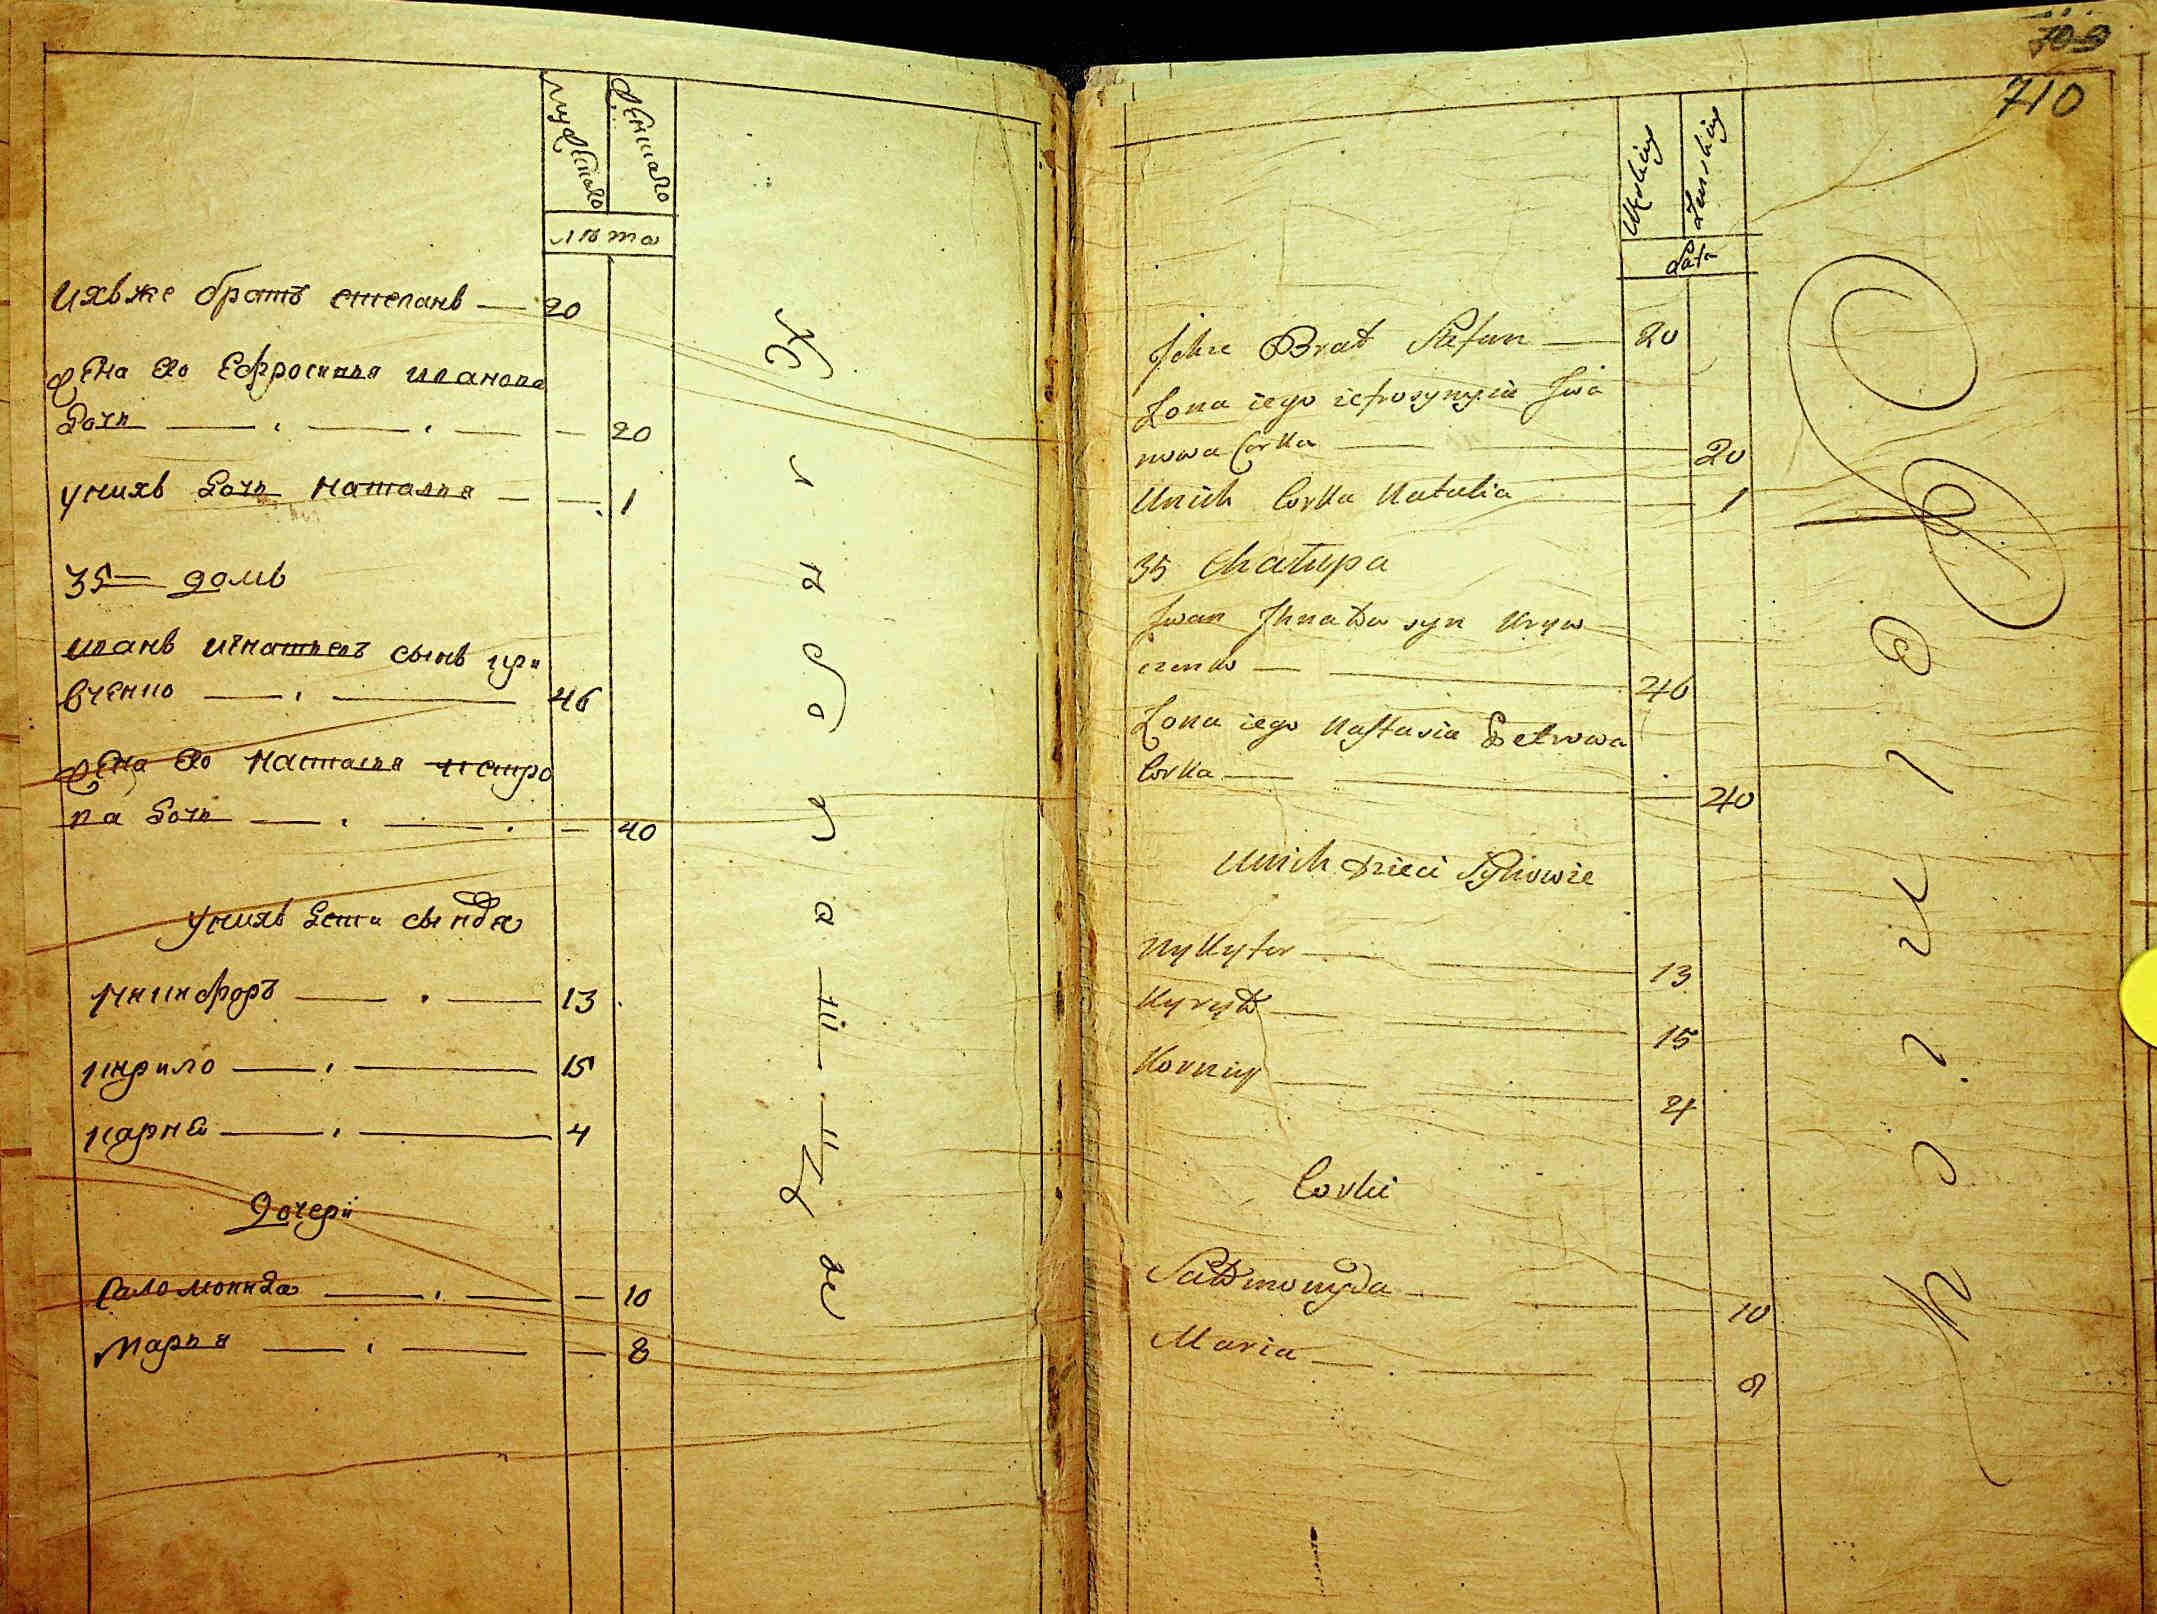 мужескаго
женскаго
лѣта
Ихъже братъ степанъ — 20
жена его Ефросинья иванова
дочь — 20
унихъ дочь наталья — 1
35 домъ
иванъ игнатьевъ сынъ кри
вченко — 46
жена его настасья петро
ва дочь — 40
унихъ дети сыновя
никифоръ — 13
кирило — 15
карней — 4
дочери
Саломонида — 10
марья — 8
709
710
Męskiey
Żenskiey
Lata
Ichże Brat Stefan — 20
Żona iego iefrosynyia Iwa
nowa Corka — 20
Unich Corka Natalia — 1
35 Chałupa
Iwan Ihnatow syn Kryw
czenko — 46
Żona iego Nastasia Petrowa
Corka — 40
Unich dzieci Synowie
Nykyfor — 13
Kyryło — 15
Korniy — 4
Corki
Sałomonyda — 10
Maria — 8